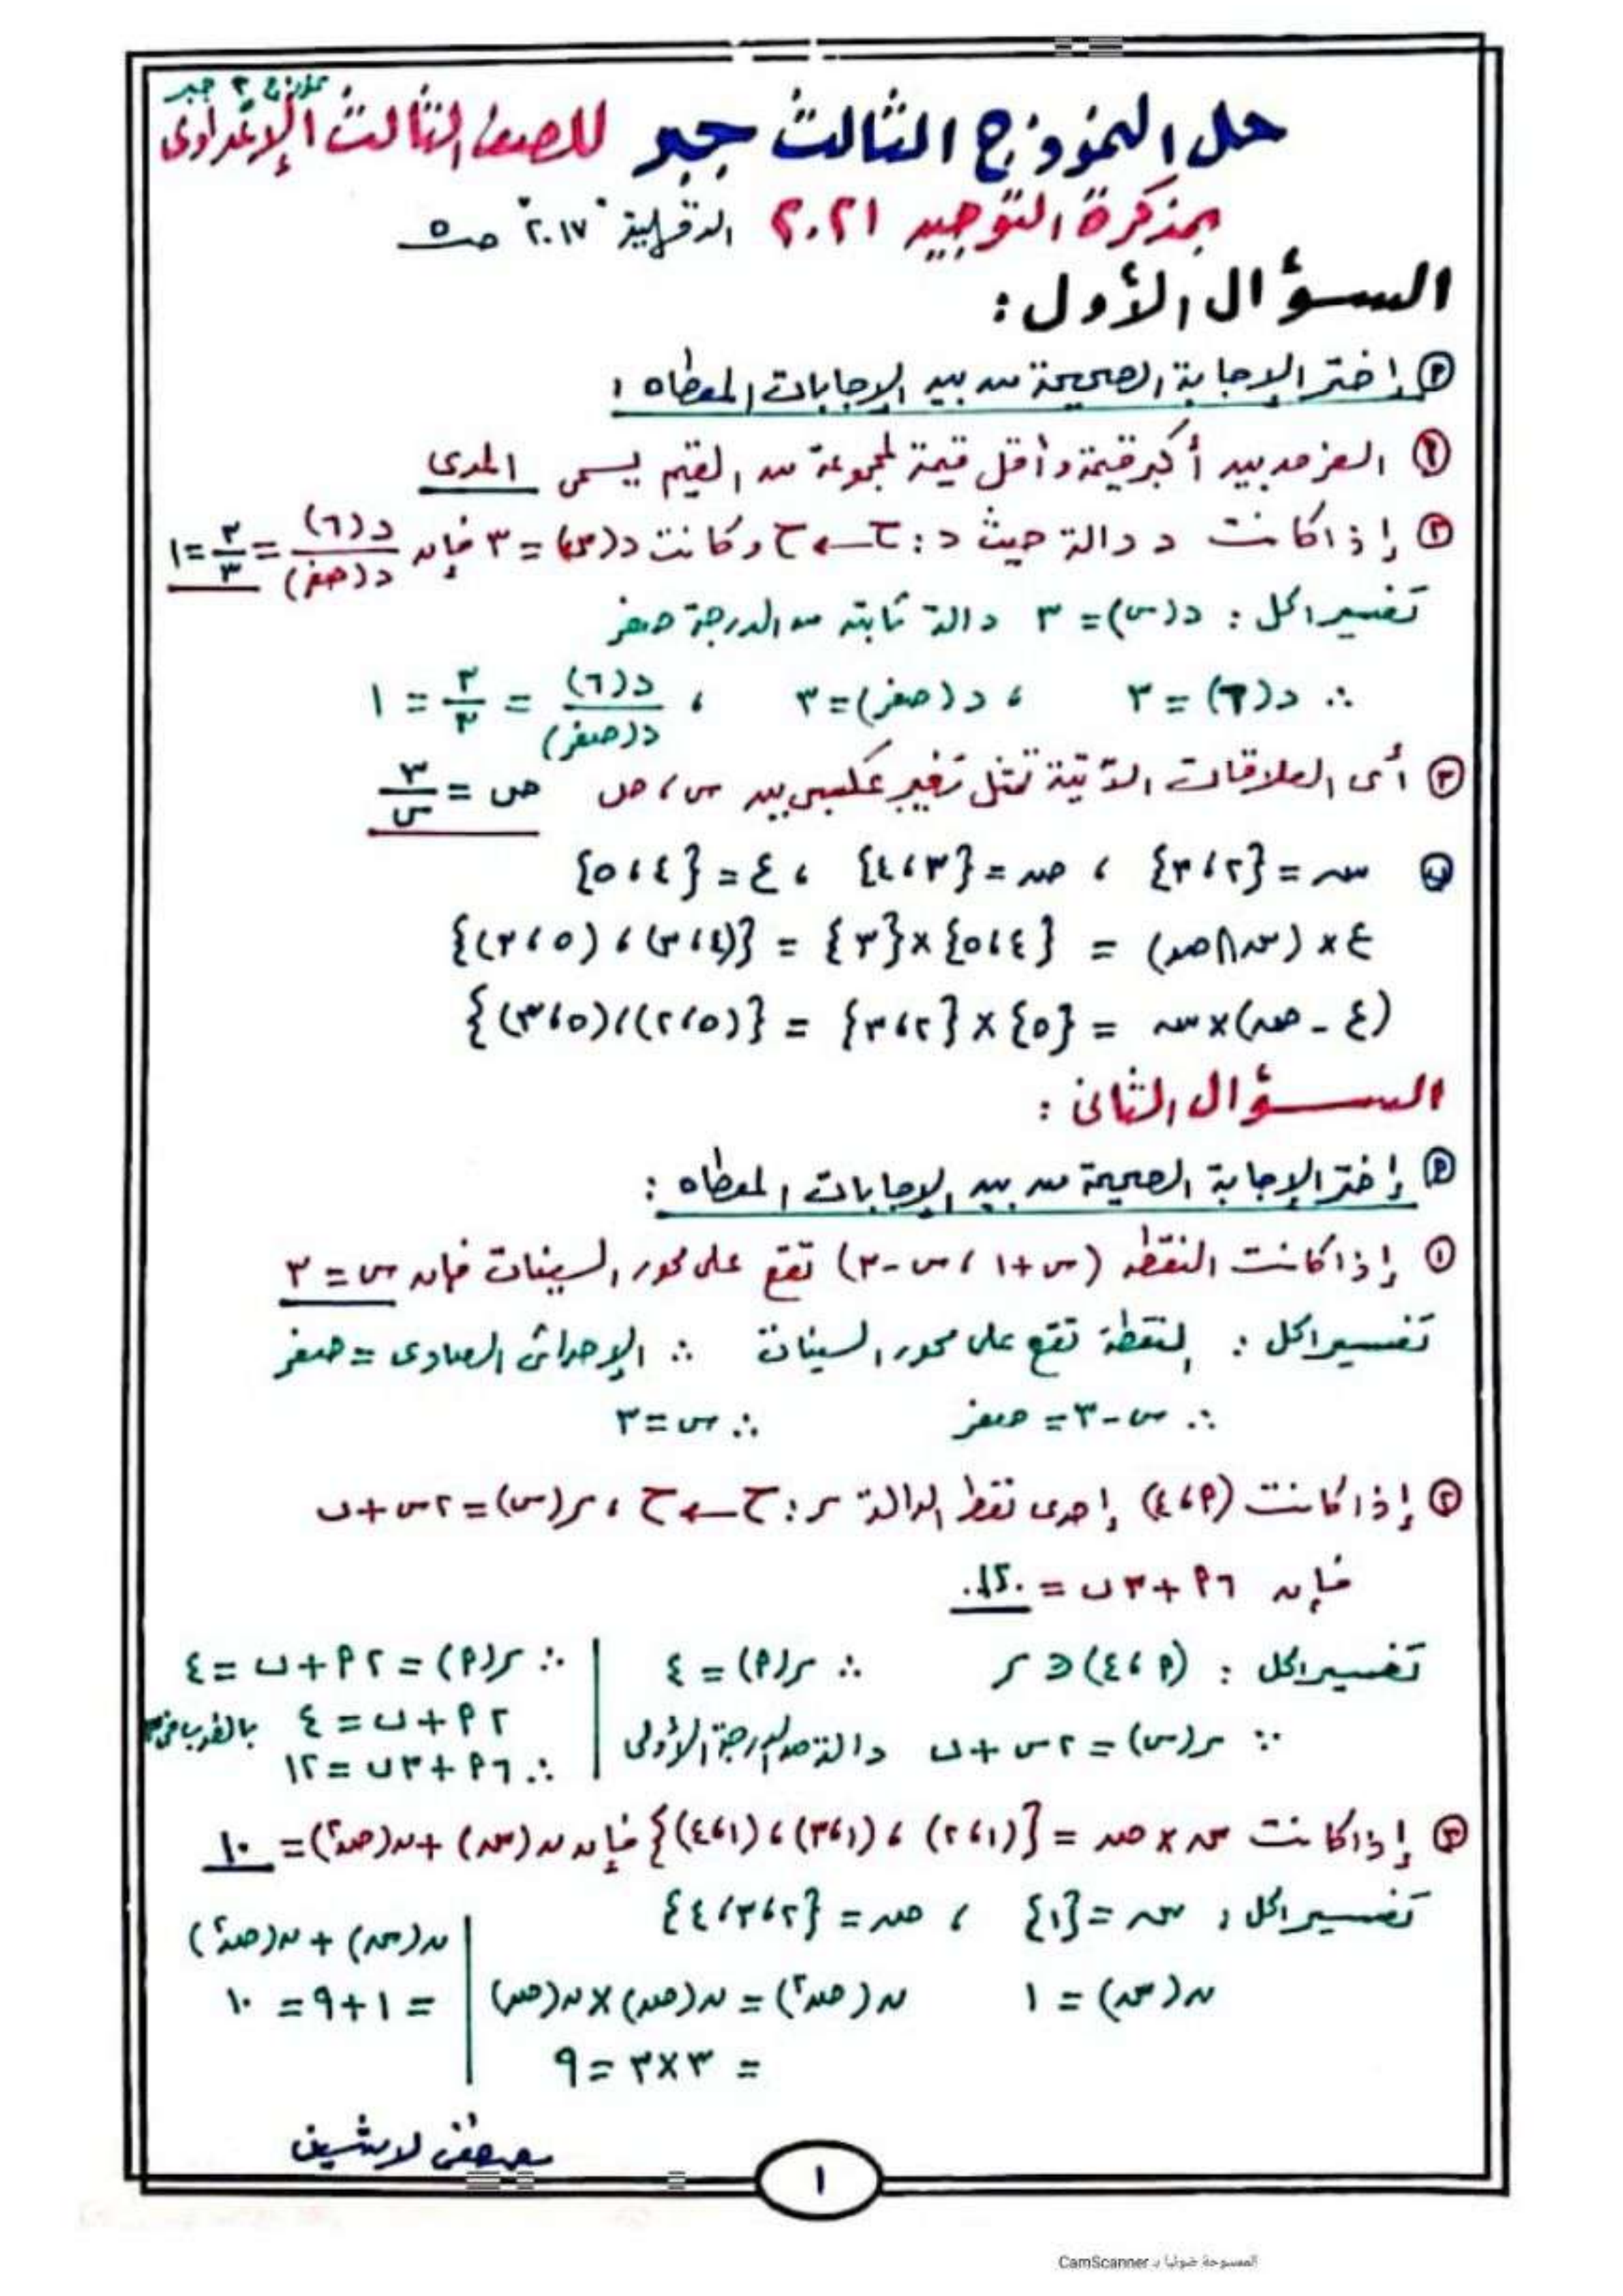 نموذج ٣ جبر
حل النموذج الثالث جبر للصف الثالث الإعدادى
بمذكرة التوجيه ٢٠٢١ الدقهلية "٢٠١٧" صـ ٥
السؤال الأول :
(أ) إختر الإجابة الصحيحة من بين الإجابات المعطاه :
(١) الفرق بين أكبر قيمة وأقل قيمة لمجموعة من القيم يسمى المدى
(٢) إذا كانت د دالة حيث د : ح ← ح وكانت د(س) = ٣ فإن د(٦)/د(صفر) = ٣/٣ = ١
تفسير الحل : د(س) = ٣ دالة ثابته من الدرجة صفر
∴ د(٦) = ٣ ، د(صفر) = ٣ ، د(٦)/د(صفر) = ٣/٣ = ١
(٣) أى العلاقات الآتية تمثل تغير عكسى بين س ، ص ص = ٣/س
(ب) سـ = {٢ ، ٣} ، صـ = {٣ ، ٤} ، ع = {٤ ، ٥}
ع × (سـ ∩ صـ) = {٤ ، ٥} × {٣} = {(٤ ، ٣) ، (٥ ، ٣)}
(ع - صـ) × سـ = {٥} × {٢ ، ٣} = {(٥ ، ٢) ، (٥ ، ٣)}
السؤال الثانى :
(أ) إختر الإجابة الصحيحة من بين الإجابات المعطاه :
(١) إذا كانت النقطة (س + ١ ، س - ٣) تقع على محور السينات فإن س = ٣
تفسير الحل : النقطة تقع على محور السينات ∴ الإحداثى الصادى = صفر
∴ س - ٣ = صفر ∴ س = ٣
(٢) إذا كانت (أ ، ٤) إحدى نقط الدالة ر : ح ← ح ، ر(س) = ٢س + ب
فإن ٦أ + ٣ب = ..١٢..
تفسير الحل : (أ ، ٤) ∈ ر ∴ ر(أ) = ٤
∵ ر(س) = ٢س + ب دالة من الدرجة الأولى
∴ ر(أ) = ٢أ + ب = ٤
٢أ + ب = ٤ بالضرب في ٣
∴ ٦أ + ٣ب = ١٢
(٣) إذا كانت سـ × صـ = {(١ ، ٢) ، (١ ، ٣) ، (١ ، ٤)} فإن ن(سـ) + ن(صـ٢) = ١٠
تفسير الحل : سـ = {١} ، صـ = {٢ ، ٣ ، ٤}
ن(سـ) = ١ ن(صـ٢) = ن(صـ) × ن(صـ)
= ٣ × ٣ = ٩
ن(سـ) + ن(صـ٢)
= ١ + ٩ = ١٠
مصطفى لاشين
١
الممسوحة ضوئيا بـ CamScanner